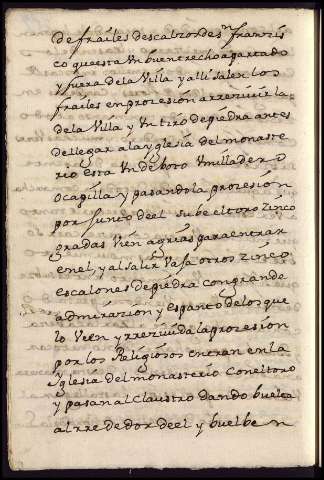 de frailes descalzos de sn. franzis
co questa Un buen trecho apartado
y fuera de la Villa y alli salen los
frailes en prozesion a rrezivir la
de la Villa y Un tiro de piedra antes
de llegar a la yglesia del monaste
rio esta Un deboto Umilladero
o capilla y pasando la prozesion
por junto de el sube el toro zinco
gradas vien agrias para entrar
en el, y al salir vaja otros zinco
escalones de piedra con grande
admirazion y espanto de los que
lo Veen y rrezivida la prozesion
por los Religiosos entran en la
Yglesia del monasterio con el toro
y pasan al claustro dando buelta
al rrededor de el y buelben